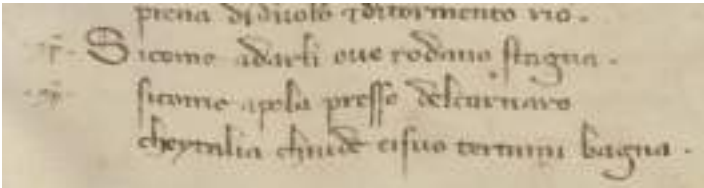 piena di duolo ⁊ di tormento rio.
Sicome adarli oue rodano stagna.
sicome apola presso delcarnaro
cheytalia chiude eisuo termini bagna.